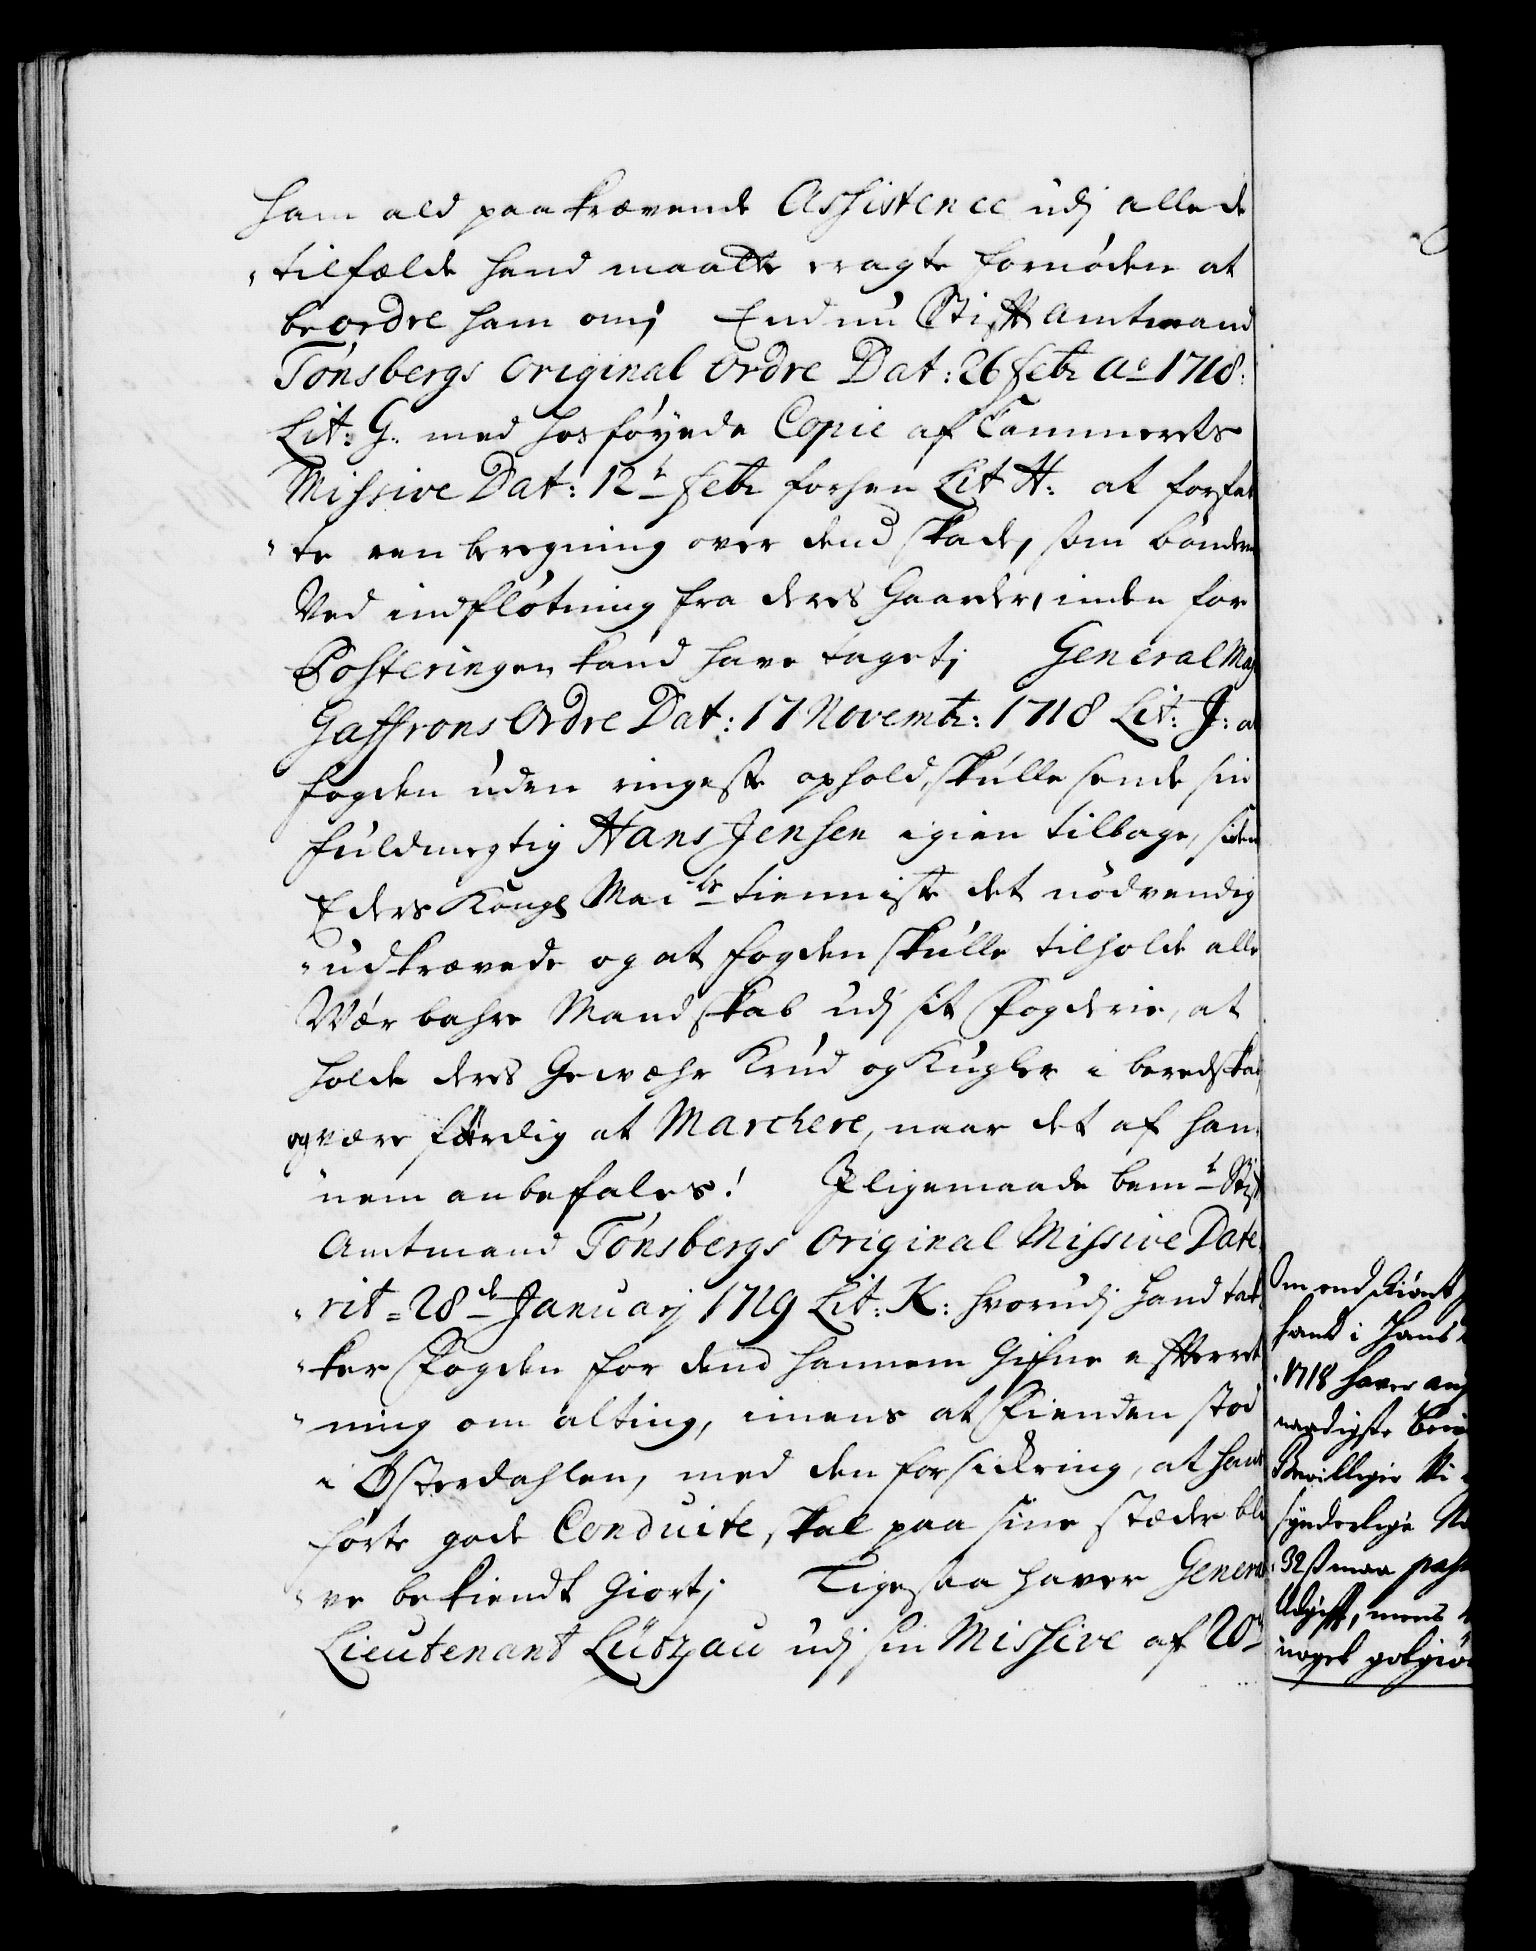 ham ald paakrævende Assistence udj allede
"tilfælde hand maatte eragte fornöden at
beordre ham om; Endnu Stift Amtmand
Tönsbergs Original Ordre Dat: 26 Febr Ao 1718:
Lit: G. med hosföyede Copie af Cammerets
Missive Dat: 12te Febr forhen Lit H: at forfat
"te een beregning over dend skade, som bönderne
Ved indflötning fra deres Gaarder, inden for
Posteringen kand have taget; General Maj
Gaffrons Ordre Dat: 17 Novembr: 1718 Lit: J: at
fogden uden ringeste ophold, skulle sende sin
fuldmegtig Hans Jensen igien tilbage, siden
Eders Kongl Maits tienniste det nödvendig
"udkrævede og at fogden skulle tilholde alle
Wær bahre Mandskab udj sit Fogderie, at
holde deres Gewæhr Krud og Kugler i beredskab
og være færdig at Marchere, naar det af han
nem anbefales! Jligemaade bemte Stift
Amtmand Tönsbergs Original Missive Date
"rit = 28de Januarij 1719 Lit: K: hvorudj hand tak
"ker Fogden for dend hannem Gifne effterret
"ning om alting, imens at Fienden stod
i Österdahlen, med den forsickring, at hans
förte gode Conduite, skal paa sine stæder bli
"ve bekiendt Giort; Ligesaa haver General
Lieutenant Lützau udj sin Missive af 20de
Om endskiönt
hand i Hans
1718 haver
naadigste
Bevilliger Vi
synderlige
32 ß maa pass
Udgift, mens
noget godgiör